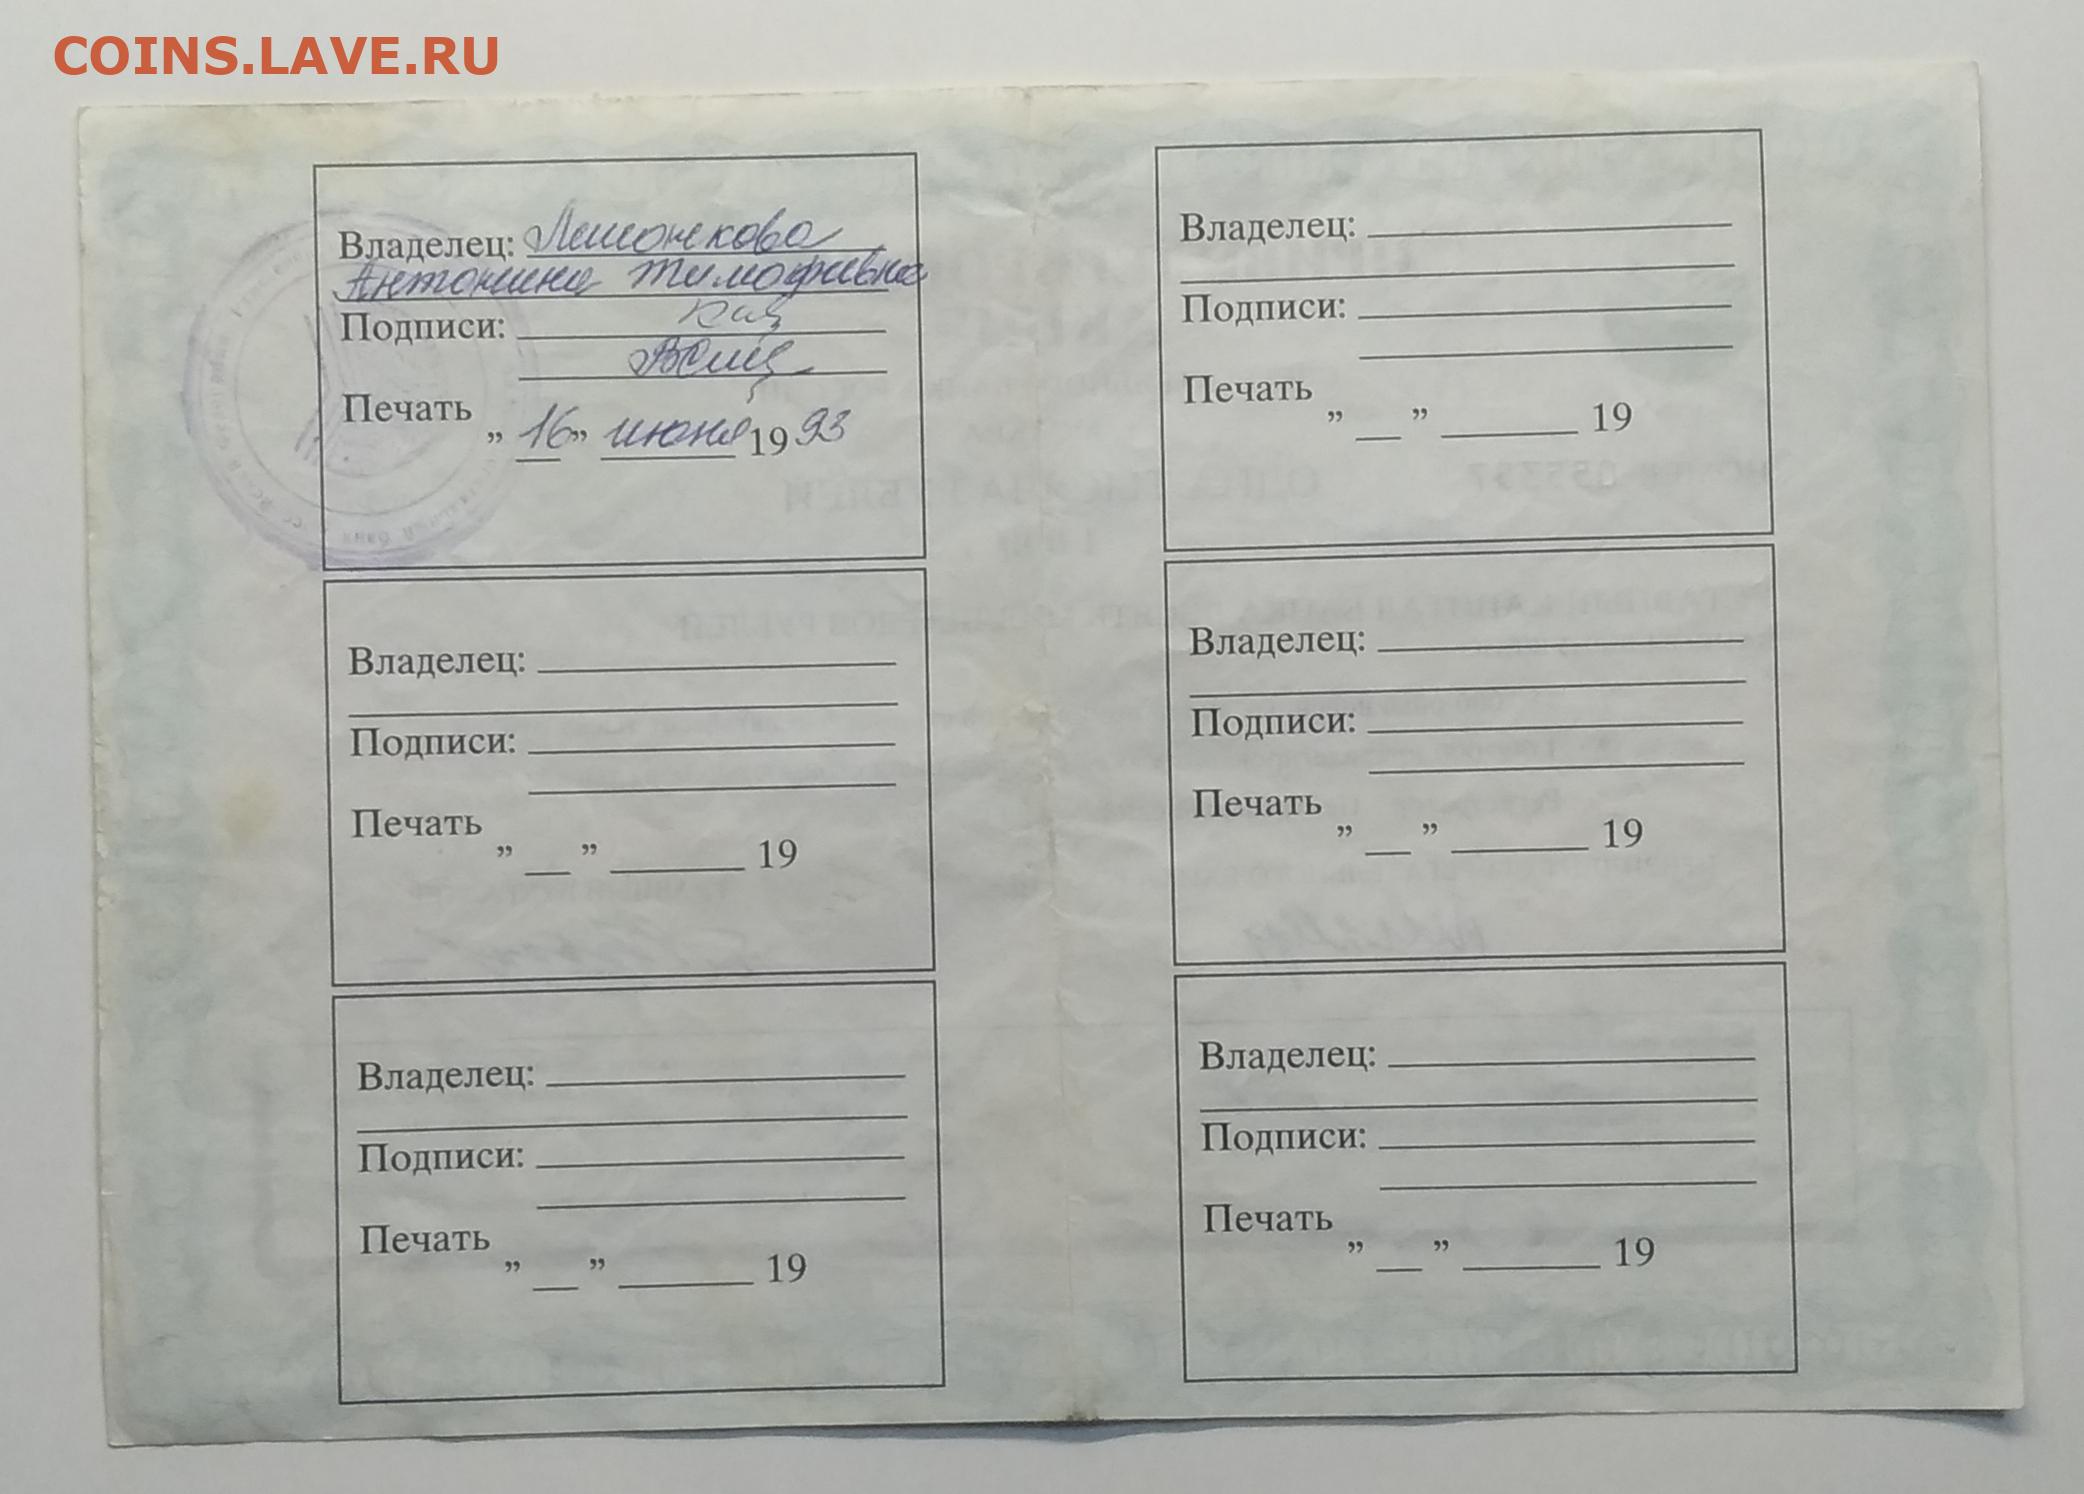 COINS.LAVE.RU
Владелец:
Антонина Тимофивна
Подписи:
Печать
„ 16 ” июня 19 93
Владелец:
Подписи:
Печать
„ __ ” ______ 19
Владелец:
Подписи:
Печать
„ __ ” ______ 19
Владелец:
Подписи:
Печать
„ __ ” ______ 19
Владелец:
Подписи:
Печать
„ __ ” ______ 19
Владелец:
Подписи:
Печать
„ __ ” ______ 19